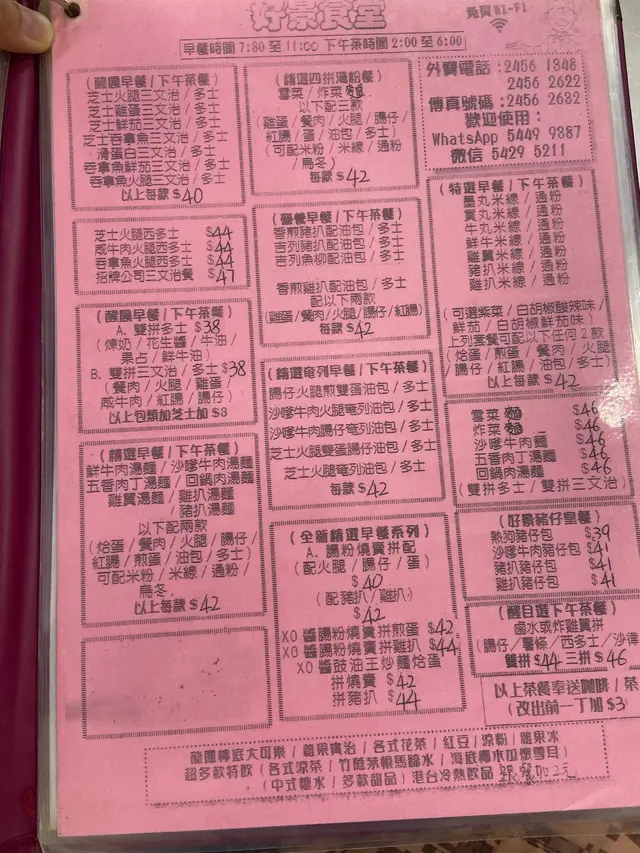 好景食堂
免費 WI-FI
早餐時間 7:30 至 11:00 下午茶時間 2:00 至 6:00
(醒晨早餐/下午茶餐)
芝士火腿三文治/多士
芝士雞蛋三文治/多士
芝士鮮茄三文治/多士
芝士吞拿魚三文治/多士
滑蛋白三文治/多士
吞拿魚鮮茄三文治/多士
吞拿魚火腿三文治/多士
以上每款 $40
芝士火腿西多士 $44
咸牛肉火腿西多士 $44
吞拿魚火腿西多士 $44
招牌公司三文治餐 $47
(醒晨早餐/下午茶餐)
A. 雙拼多士 $38
(煉奶/花生醬/牛油/
果占/鮮牛油)
B. 雙拼三文治/多士 $38
(餐肉/火腿/雞蛋/
咸牛肉/紅腸/腸仔)
以上包類加芝士加 $3
(精選早餐/下午茶餐)
鮮牛肉湯麵/沙嗲牛肉湯麵
五香肉丁湯麵/回鍋肉湯麵
雞翼湯麵/雞扒湯麵
豬扒湯麵
以下配兩款
(烚蛋/餐肉/火腿/腸仔/
紅腸/煎蛋/油包/多士)
可配米粉/米線/通粉/
烏冬
以上每款 $42
(精選四拼湯粉餐)
雪菜/炸菜麵
以下配三款
(雞蛋/餐肉/火腿/腸仔/
紅腸/蛋/油包/多士)
(可配米粉/米線/通粉
/烏冬)
每款 $42
(營養早餐/下午茶餐)
香煎豬扒配油包/多士
吉列豬扒配油包/多士
吉列魚柳配油包/多士
香煎雞扒配油包/多士
配以下兩款
(雞蛋/餐肉/火腿/腸仔/紅腸)
每款 $42
(精選奄列早餐/下午茶餐)
腸仔火腿煎雙蛋油包/多士
沙嗲牛肉火腿奄列油包/多士
沙嗲牛肉腸仔奄列油包/多士
芝士火腿雙蛋腸仔油包/多士
芝士火腿奄列油包/多士
每款 $42
(全新精選早餐系列)
A. 腸粉燒賣拼配
(配火腿/腸仔/蛋)
$40
(配豬扒/雞扒)
$42
XO 醬腸粉燒賣拼煎蛋 $42
XO 醬腸粉燒賣拼雞扒 $44
XO 醬豉油王炒麵烚蛋
拼燒賣 $42
拼豬扒 $44
外賣電話:2456 1848
2456 2622
傳真號碼:2456 2632
歡迎使用:
WhatsApp 5449 9387
微信 5429 5211
(特選早餐/下午茶餐)
墨丸米線/通粉
貢丸米線/通粉
牛丸米線/通粉
鮮牛米線/通粉
雞翼米線/通粉
豬扒米線/通粉
雞扒米線/通粉
(可選紫菜/白胡椒酸辣味/
鮮茄/白胡椒鮮茄味)
上列套餐可配以下任何2款
(烚蛋/煎蛋/餐肉/火腿
/腸仔/紅腸/油包/多士)
以上每款 $42
雪菜麵 $46
炸菜麵 $46
沙嗲牛肉麵 $46
五香肉丁湯麵 $46
回鍋肉湯麵 $46
(雙拼多士/雙拼三文治)
(好景豬仔皇餐)
熱狗豬仔包 $39
沙嗲牛肉豬仔包 $41
豬扒豬仔包 $41
雞扒豬仔包 $41
(醒目選下午茶餐)
鹵水或炸雞翼拼
(腸仔/薯條/西多士/沙律
雙拼 $44 三拼 $46
以上茶餐奉送咖啡/茶
(改出前一丁加 $3
龍鳳峰底大可樂/雜果賓治/各式花茶/紅豆/涼粉/雜果冰
超多款特飲(各式涼茶/竹蔗茅根馬蹄水/海底椰木瓜燉雪耳)
(中式糖水/多款甜品)港台冷熱飲品 跟餐加2元